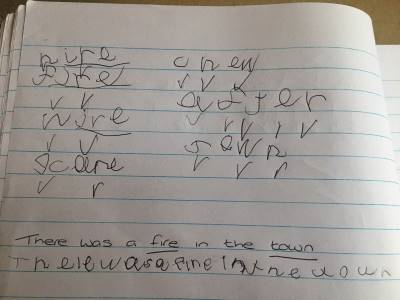 hire
fire
wire
scare
chew
after
town
There was a fire in the town
Therewasafireinthetown